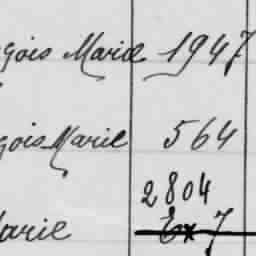 çois Marie 1947
çois Marie 564
2804
Marie Ex 7